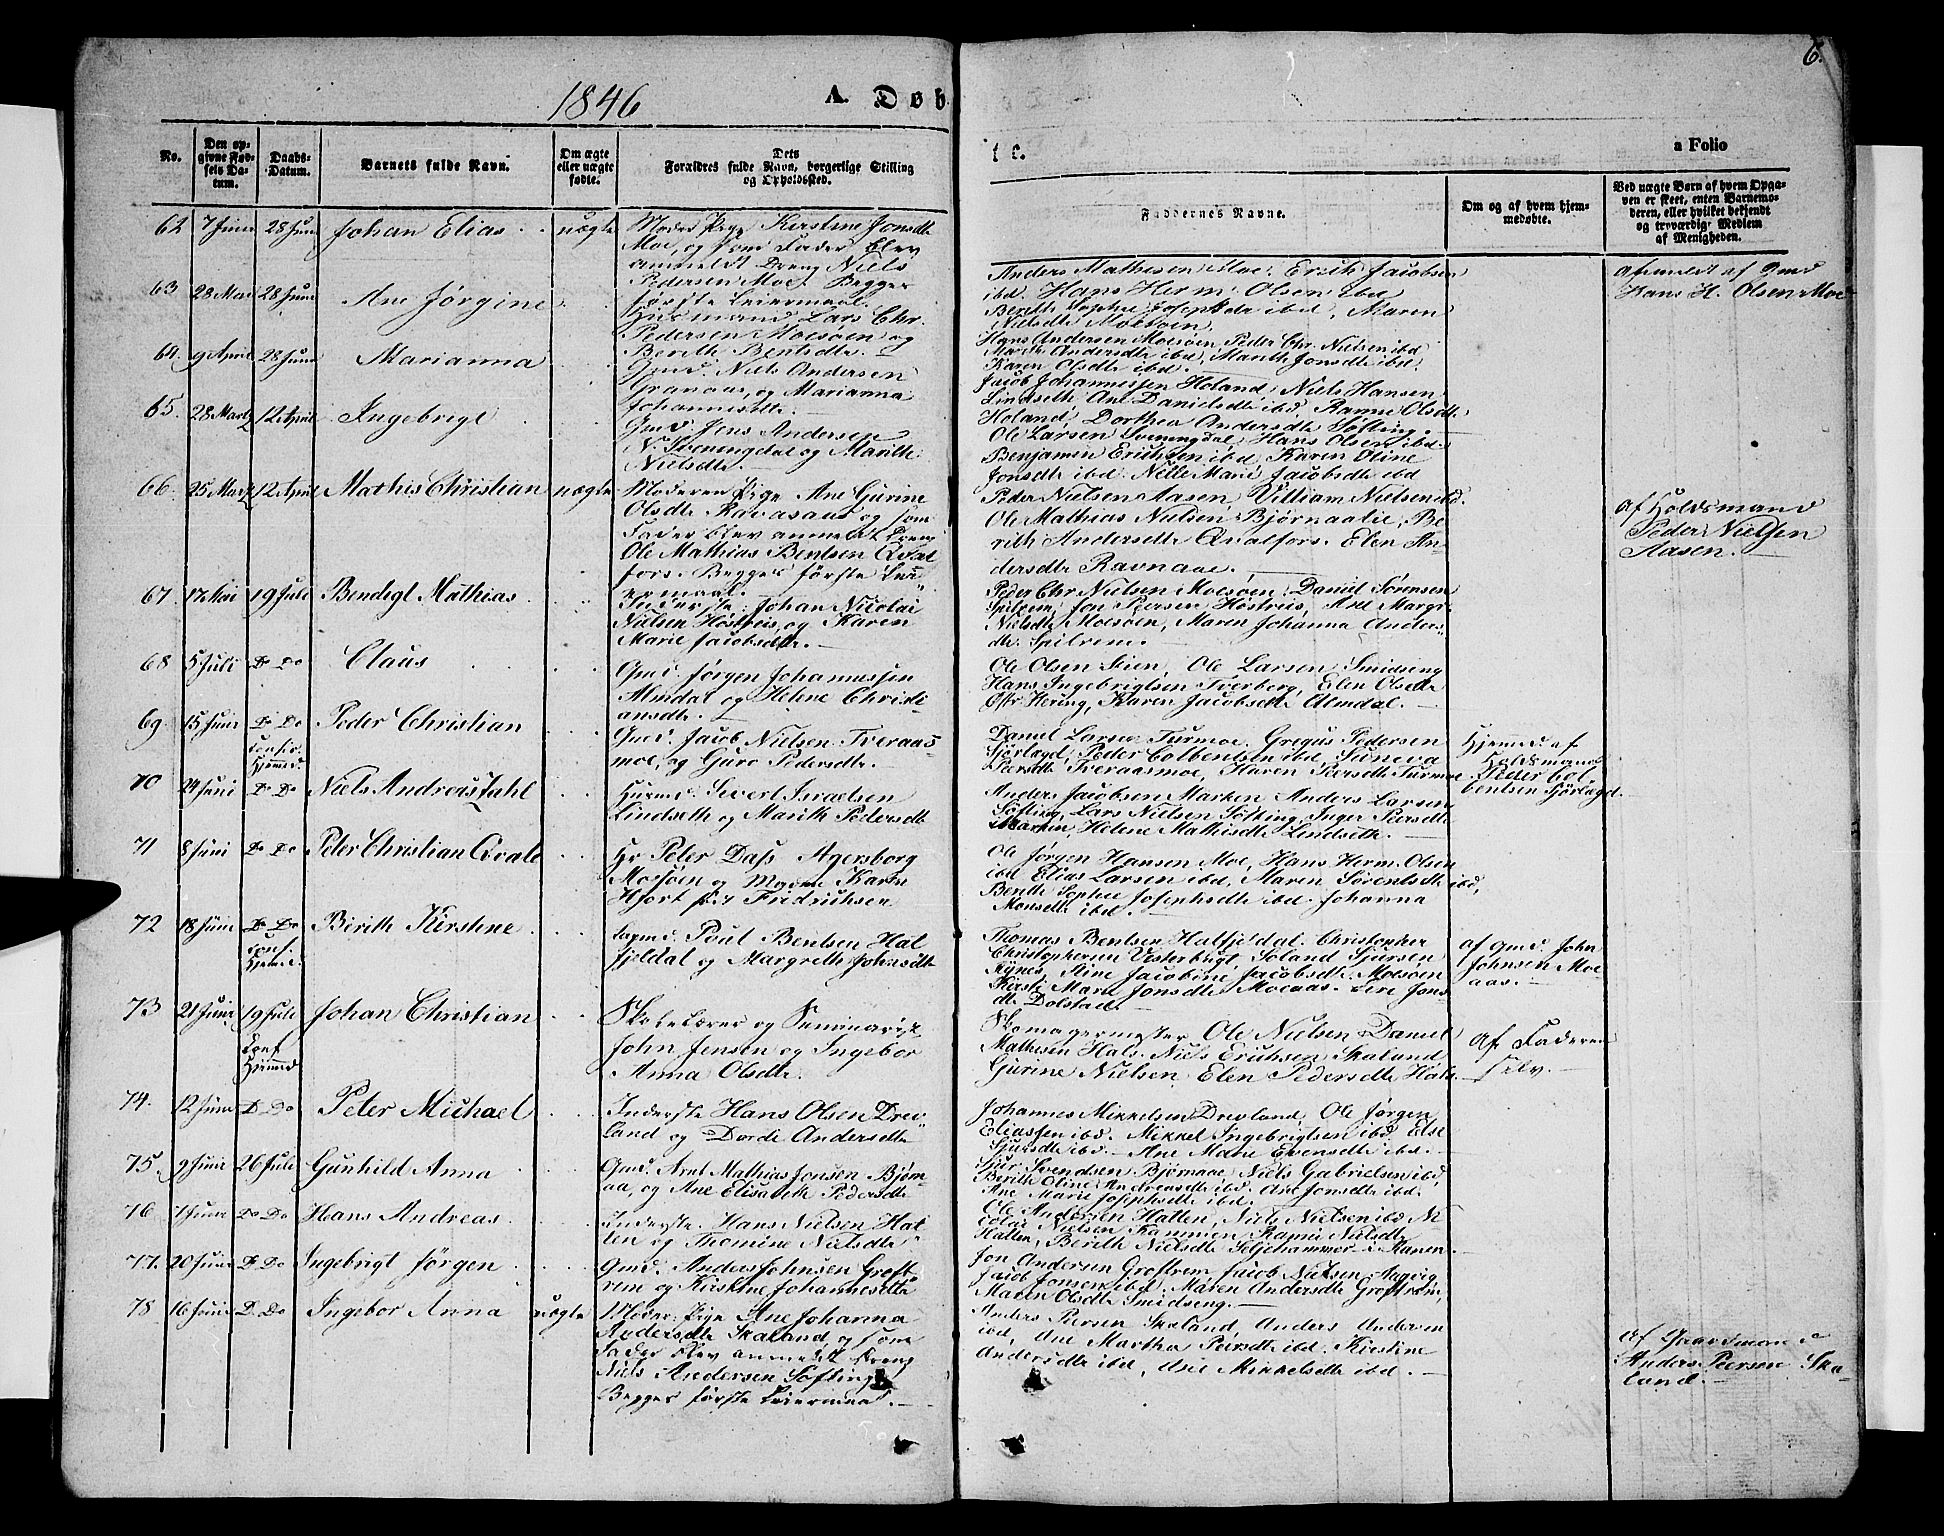 6.
1846
A. Døb
te.
a Folio
No.
Den op-
givne Fød-
sels Da-
tum.
Daabs-
Datum.
Barnets fulde Navn.
Om ægte
eller uægte
fødte.
Dets
Forældres fulde Navn, borgerlige Stilling
og Opholdssted.
Faddernes Navne.
Om og af hvem hjem-
medøbte.
Ved uægte Børn af hvem Opga-
ven er skeet, enten Barnemo-
deren, eller hvilket bekjendt
og troværdigt Medlem
af Menigheden.
62 7 Juni 28 Juni Johan Elias uægte Moder Pige Kirstine Jonsdtr
Moe, og som Fader blev
anmeldt Dreng Niels
Pedersen Moe. Begges
første Leiermaal.
Anders Mathisen Moe, Erich Jacobsen
ibd. Hans Herm. Olsen ibd
Berith Sophie Josephsdtr ibd, Maren
Nielsdtr Moesøen.
Afmeldt af Gmd
Hans H. Olsen Moe
63 28 Mai 28 Juni Ane Jørgine Husmand Lars Chr.
Pedersen Moesøen og
Berith Bentsdtr.
Hans Andersen Moesøen, Peder Chr. Nielsen ibd
Marith Andersdtr ibd, Marith Jonsdtr ibd.
Karen Olsdtr ibd.
64. 9 April 28 Juni Marianna Gmd. Niels Andersen
Granaas, og Marianna
Johannesdtr.
Jacob Johannessen Holand, Niels Hansen
Lindseth Ane Danielsdtr ibd, Ranne Olsdtr
Holand, Dorthea Andersdtr Søfting.
65. 28 Marts 12 April Ingebrigt Gmd. Jens Andersen
N. Svenningdal og Marith
Nielsdtr.
Ole Larsen Svenningdal, Hans Olsen ibd.
Benjamin Erichsen ibd, Karen Oline
Jonsdtr ibd. Nelle Marie Jacobsdtr ibd
66. 25 Marts 12 April Mathis Christian uægte Moderen Pige Ane Gurine
Olsdtr Ravasaas og som
Fader blev anmeldt Dreng
Ole Mathias Bentsen Qval
fors. Begges første Lei-
ermaal.
Peder Nielsen Aasen, Villiam Nielsen ibd.
Ole Mathias Nielsen Bjørnaalie, Be-
rith Andersdtr Qvalfors. Elen An-
dersdtr Ravnaae.
af Holdsmand
Peder Nielsen
Aasen.
67. 17 Mai 19 Juli Bendigt Mathias Inderste Johan Nicolai
Nielsen Høstreis, og Karen
Marie Jacobsdtr.
Peder Chr Nielsen Moesøen, Daniel Sørensen
Spilrem, Jon Persen Høstreis, Ane Margr.
Nielsdtr Moesøen, Maren Johanna Anders-
dtr. Spilrem.
68 5 Juli Do Do Claus Gmd. Jørgen Johannessen
Almdal og Helene Christi-
ansdtr.
Ole Olsen Stien, Ole Larsen Smidseng
Hans Ingebrigtsen Tverberg, Elen Olsdtr
Østr Hering, Karen Jacobsdtr Almdal.
69. 15 Juni Do Do
Confir.
Hjemmed. Peder Christian Gmd. Jacob Nielsen Tveraas-
moe, og Guro Pedersdtr.
Daniel Larsen Turmoe, Gregus Pedersen
Sjørlagd, Peder Colbentsen ibd, Suneva
Peersdtr Tveraasmoe, Karen Peersdtr Turmoe
Hjemmed af
Holdsmand
Peder Col-
bentsen Sjørlagd.
70 29 Juni Do Do Niels Andreas Juhl Husmd. Sivert Israelsen
Lindseth og Marith Pedersdtr
Anders Jacobsen Marken Anders Larsen
Søfting, Lars Nielsen Søfting, Inger Peersdtr
Marken, Helene Mathisdtr Lindseth.
71 8 Juni Do Do Peter Christian Qvale Hr Peter Dass Agersborg
Moesøen og Madme Karen
Hjort f: Fredrichsen
Ole Jørgen Hansen Moe, Hans Herm. Olsen
ibd Elias Larsen ibd, Maren Sørentsdtr ibd,
Benth Sophie Josephsdtr ibd. Johanna
Monsdtr ibd.
72 18 Juni Do Do
Conf.
Hjemd. Birith Kirstine Gmd. Poul Bentsen Hal
fjeldal og Margreth Johnsdtr
Thomas Bentsen Halfjeldal. Christopher
Christophersen Vesterbugt Soland Sjursen
Rynes, Stine Jacobine Jacobsdtr Moesøen
Kirsti Marie Jonsdtr Moeaas. Jons
dtr Dolstad.
af Gmd. John
Johnsen Moe
aas.
73 21 Juni 19 Juli
Conf
Hjemmd Johan Christian Skolelærer og Seminarist
John Jensen og Ingebor
Anna Olsdtr.
Skomagermester Ole Nielsen Daniel
Mathisen Hals. Niels Erichsen Skaland
Gurine Nielsen Elen Pedersdtr Hals.
Af Faderen
selv.
74. 12 Juni D. Do Peter Michael Inderste Hans Olsen Drev-
land og Dorde Andersdtr
Johannes Mikkelsen Drevland, Ole Jørgen
Eliassen ibd. Mikkel Ingebrigtsen ibd Else
Sjursdtr ibd. Ane Marie Evensdtr ibd.
75. 9 Juni 26 Juli Gunhild Anna Gmd. Arnt Mathias Jonsen Bjørn-
aa, og Ane Elisabeth Pedersdtr
Sjur Svendsen Bjørnaae, Niels Gabrielsen ibd,
Berith Oline Andreasdtr ibd. Ane Jonsdtr ibd.
Ane Marie Josephsdtr ibd.
76 7 Juni Do Do Hans Andreas. Inderste Hans Nielsen Hat-
ten og Thomine Nielsdtr
Ole Andersen Hatten, Niels Nielsen ibd Ni-
colai Nielsen Kammen Ragni Nielsdtr
Hatten, Berith Nielsdtr Seljehammer
77. 20 Juni D. Do Ingebrigt Jørgen Gmd. Anders Johnsen Grøft
rem og Kirstine Johannesdtr
Jon Andersen Grøftrem Jacob Nielsen Aagvig
Jacob Jonsen ibd. Maren Andersdtr Grøftrem,
Maren Olsdtr Smidseng.
78 16 Juni D. Do Ingebor Anna uægte Moder Pige Ane Johanna
Andersdtr Skaland og som
Fader blev anmeldt Dreng
Niels Andersen Søfting
Begges første Leiermaal.
Anders Peersen Skaland, Anders Andersen
ibd, Ane Martha Peersdtr ibd. Kirstine
Andersdtr ibd, Mikkelsdtr ibd.
af Gaardmand
Anders Peersen Ska-
land.